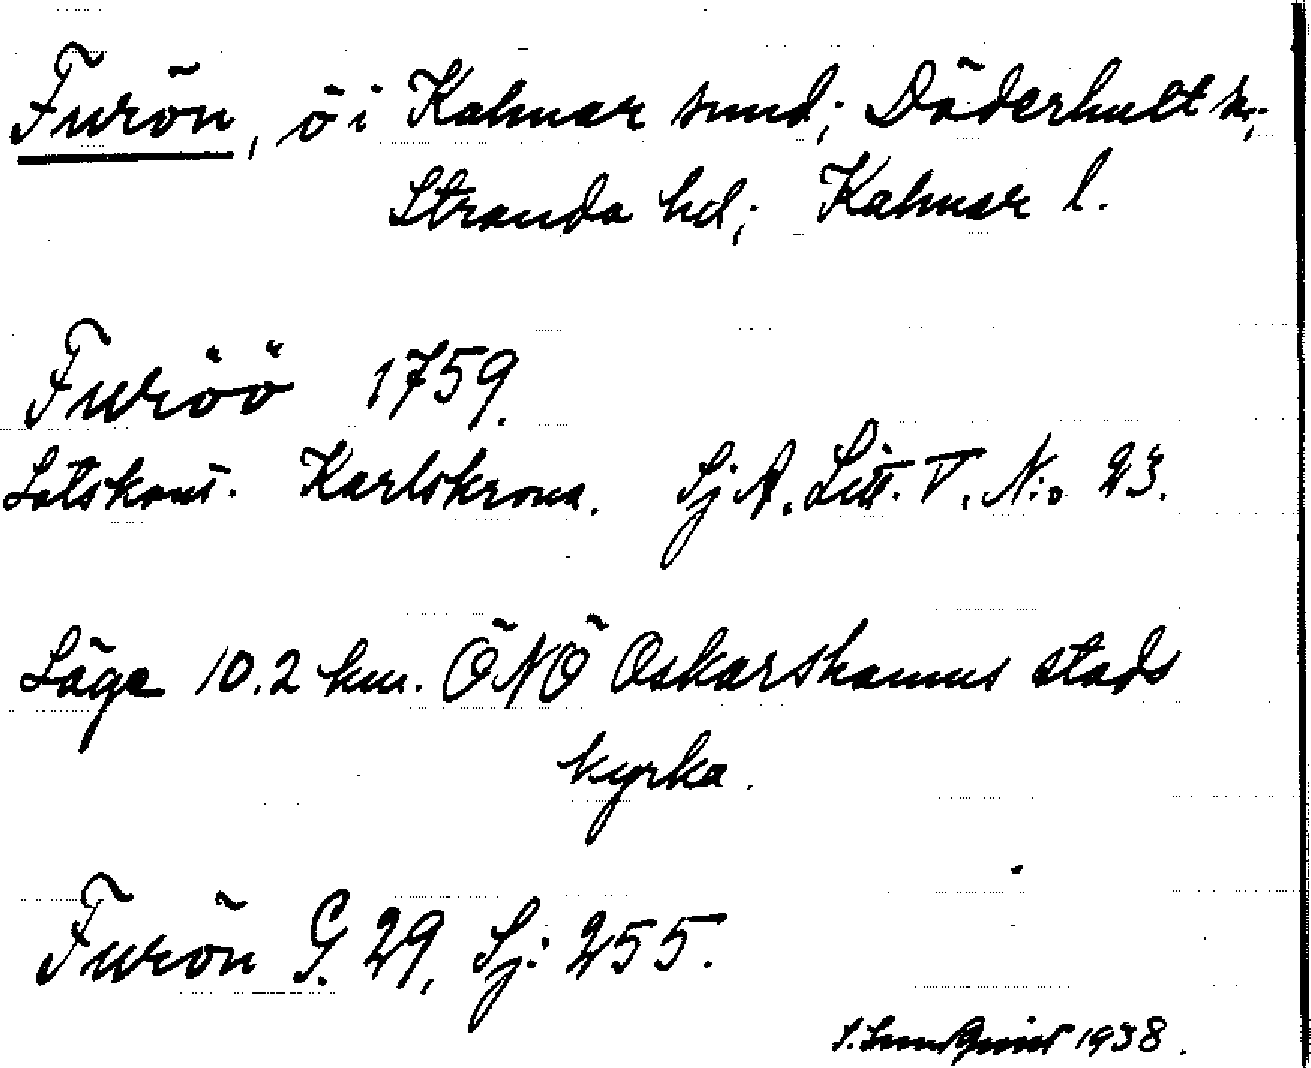 Furön, ö i Kalmar sund; Döderhult sn;
Stranda hd; Kalmar l.
Furöö 1759.
Lotskont. Karlskrona. Sj A. Litt. T. N:o 23.
Läge 10.2 km. ÖNÖ Oskarshamns stads
kyrka.
Furön G. 29, Sj: 255.
S. Lundquist 1938.